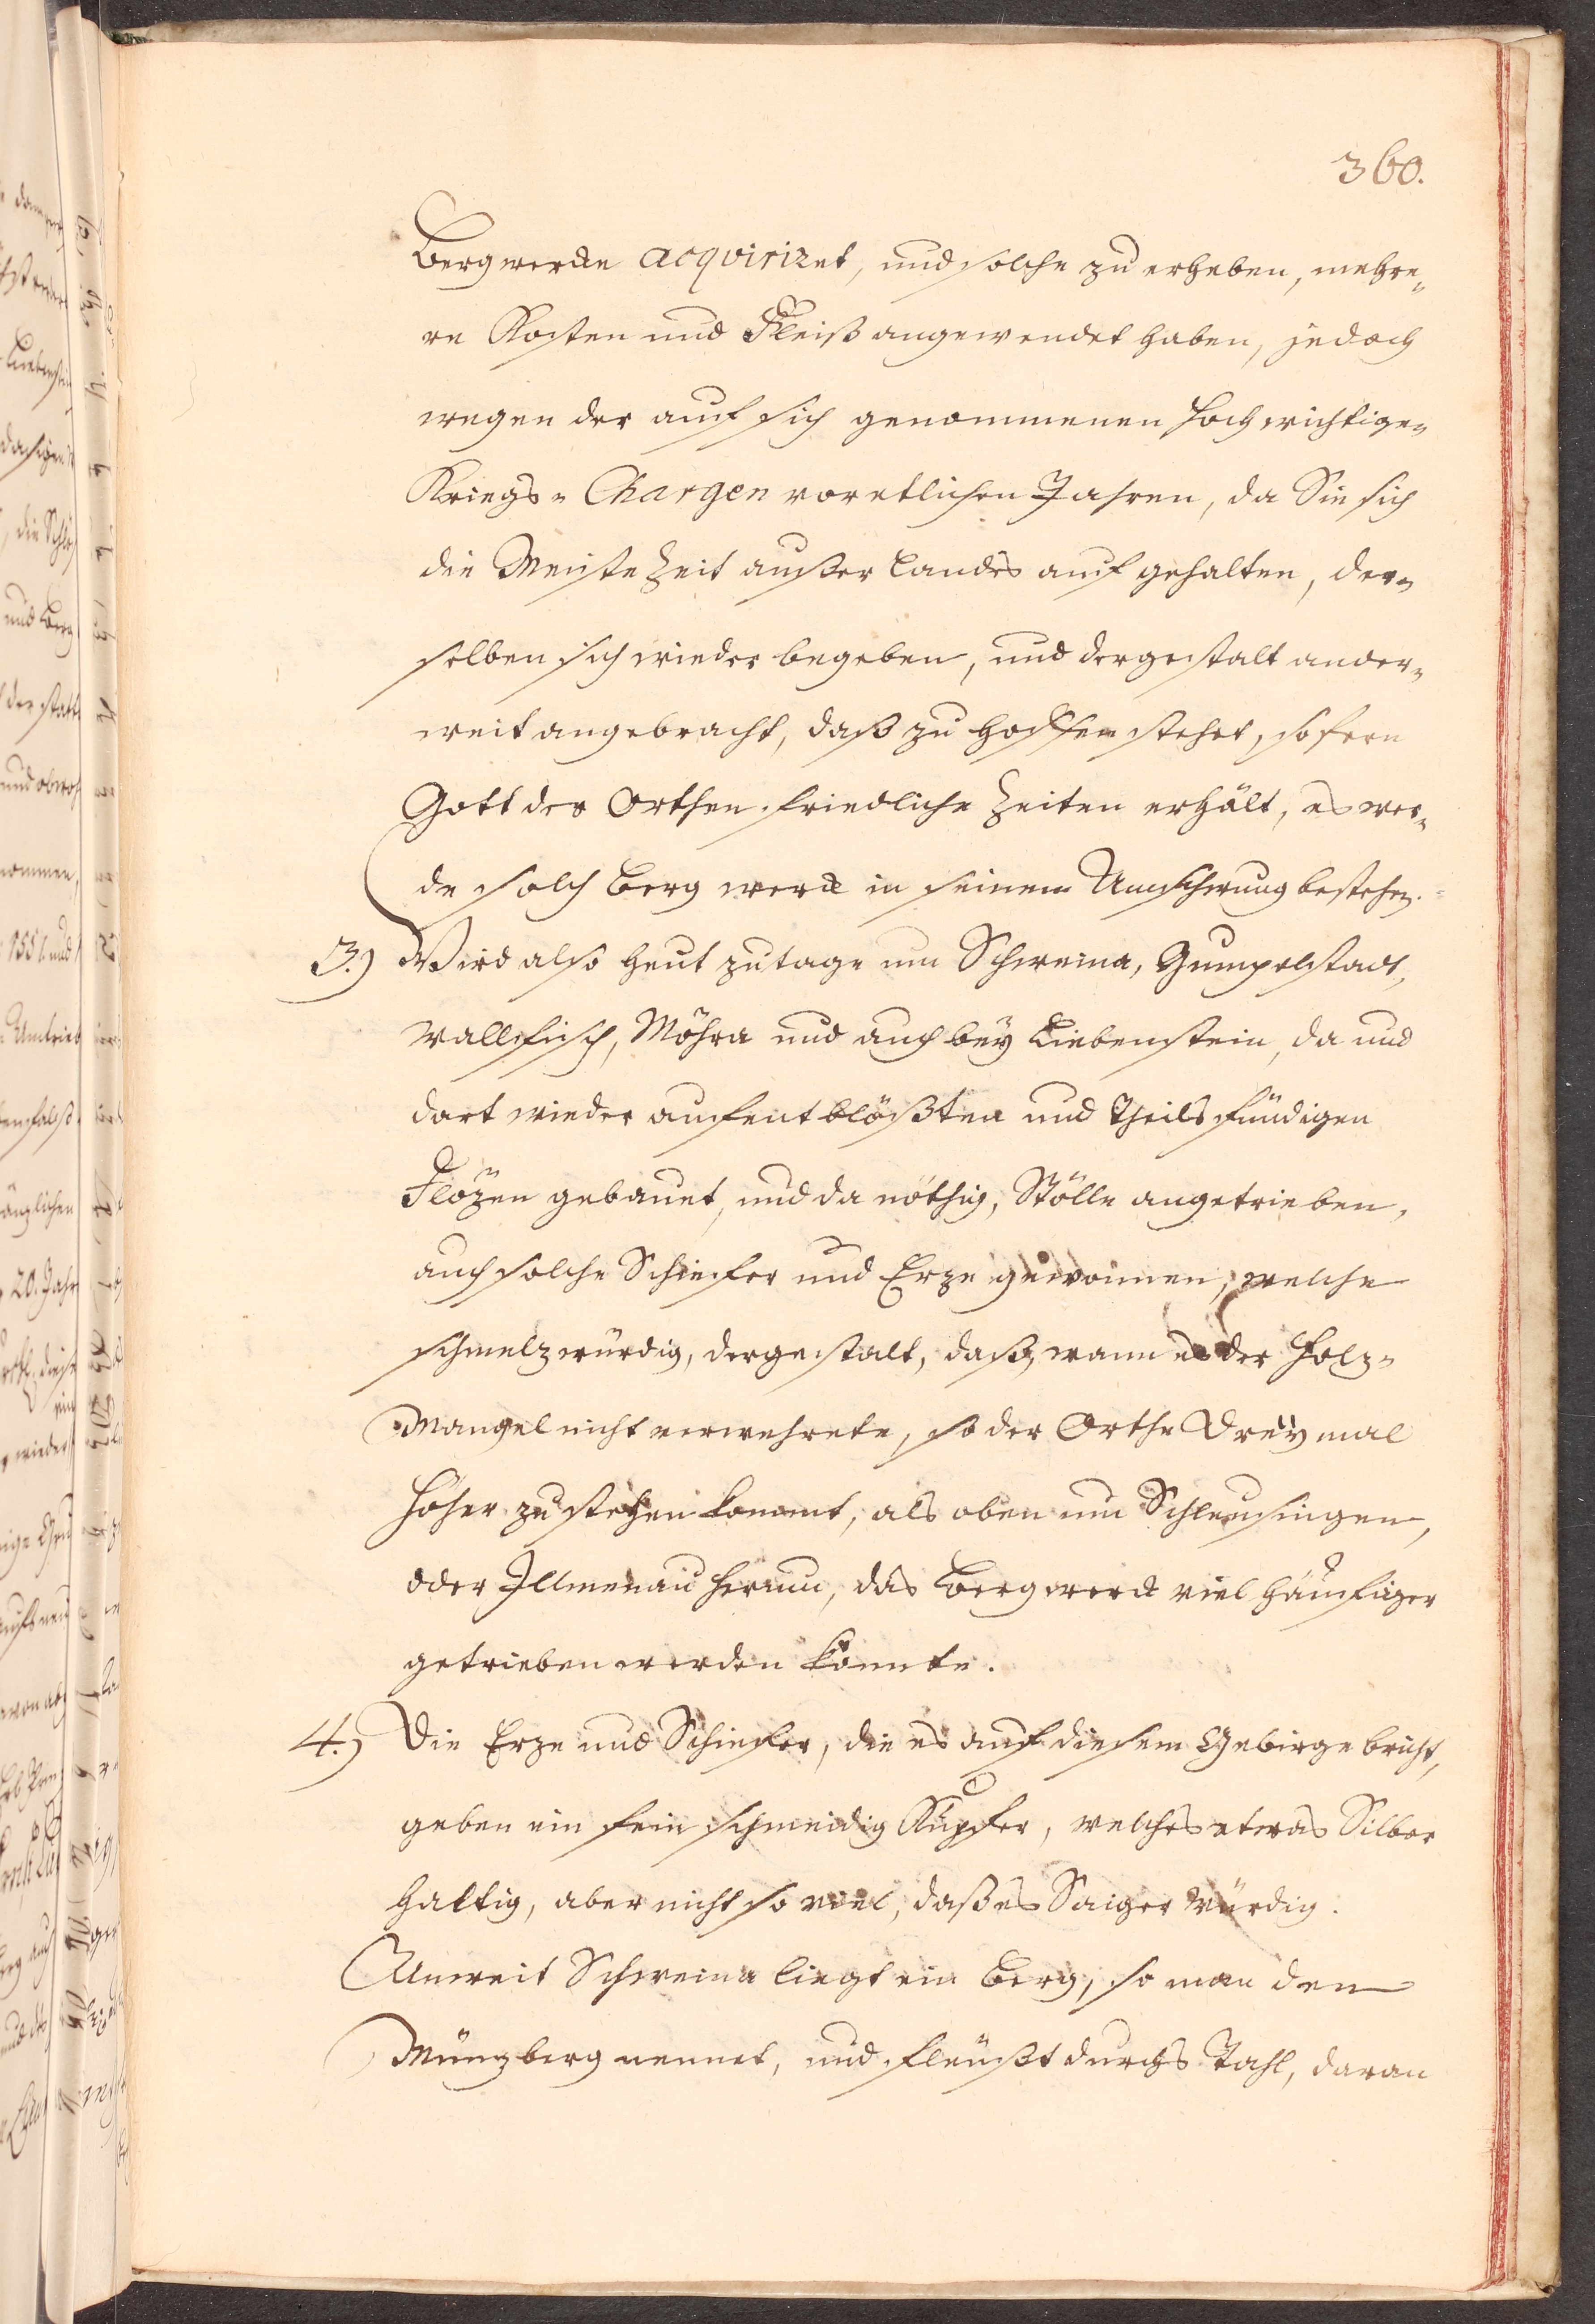 360.
Bergwercke acqviriret, und solche zu erheben, mehre„
re Kosten und Fleiß angewendet haben, jedoch
wegen der auf sich genommenen hochwichtigen
Kriegs„ Chargen vor etlichen Jahren, da Sie sich
die Meiste Zeit außer Landes aufgehalten, der„
selben sich wieder begeben, und dergestalt ander„
weit angebracht, daß zu hoffen stehet, so fern
Gott der Orthen friedliche Zeiten erhält, es wer„
de solch Bergwerck in seinem Umschwung bestehen.
3.) Wird also heut zu tage um Schweina, Gumpelstadt,
Wallefisch, Möhra und auch bey Liebenstein, da und
dort wieder auf entblößten und theils fündigen
Flözen gebauet, und da nöthig, Stölle angetrieben,
auch solche Schiefer und Erze gewonnen, welche
schmelzwürdig, dergestalt, daß, wann es der Holz„
Mangel nicht verwehrete, so der Orthe Dreymal
höher zu stehen kommt, als oben um Schleusingen,
oder Illmenau herum, das Bergwerck viel häuffiger
getrieben werden könnte.
4.) Die Erze und Schiefer, die es auf diesem Gebirge bricht,
geben ein fein schmeidig Kupfer, welches etwas Silber
haltig, aber nicht so viel, daß es Saiger würdig.
Unweit Schweina liegt ein Berg, so man den
Münzberg nennet, und fleußt durchs Tahl, daran